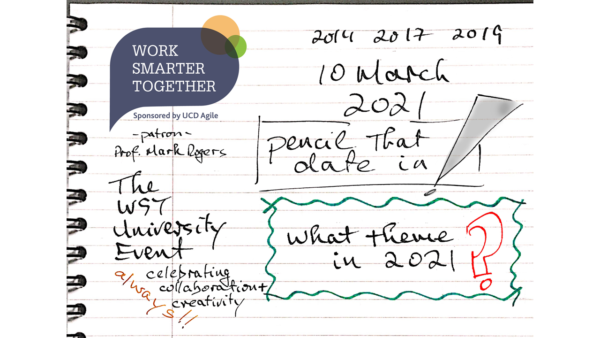 WORK
SMARTER
TOGETHER
Sponsored by UCD Agile
-patron-
Prof. Mark Rogers
The
WST
University
Event
celebrating
collaboration+
creativity
always!!
2014 2017 2019
10 March
2021
pencil That
date in
what theme
in 2021
?